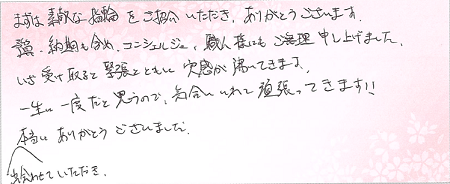 まずは素敵な指輪をご紹介いただき、ありがとうございます。
、納期も含め、コンシェルジュ、職人様にもご無理申し上げました。
いざ受け取ると緊張とともに実感が湧いてきます。
一生に一度だと思うので、気合いいれて頑張ってきます!!
本当にありがとうございました。
せていただき、